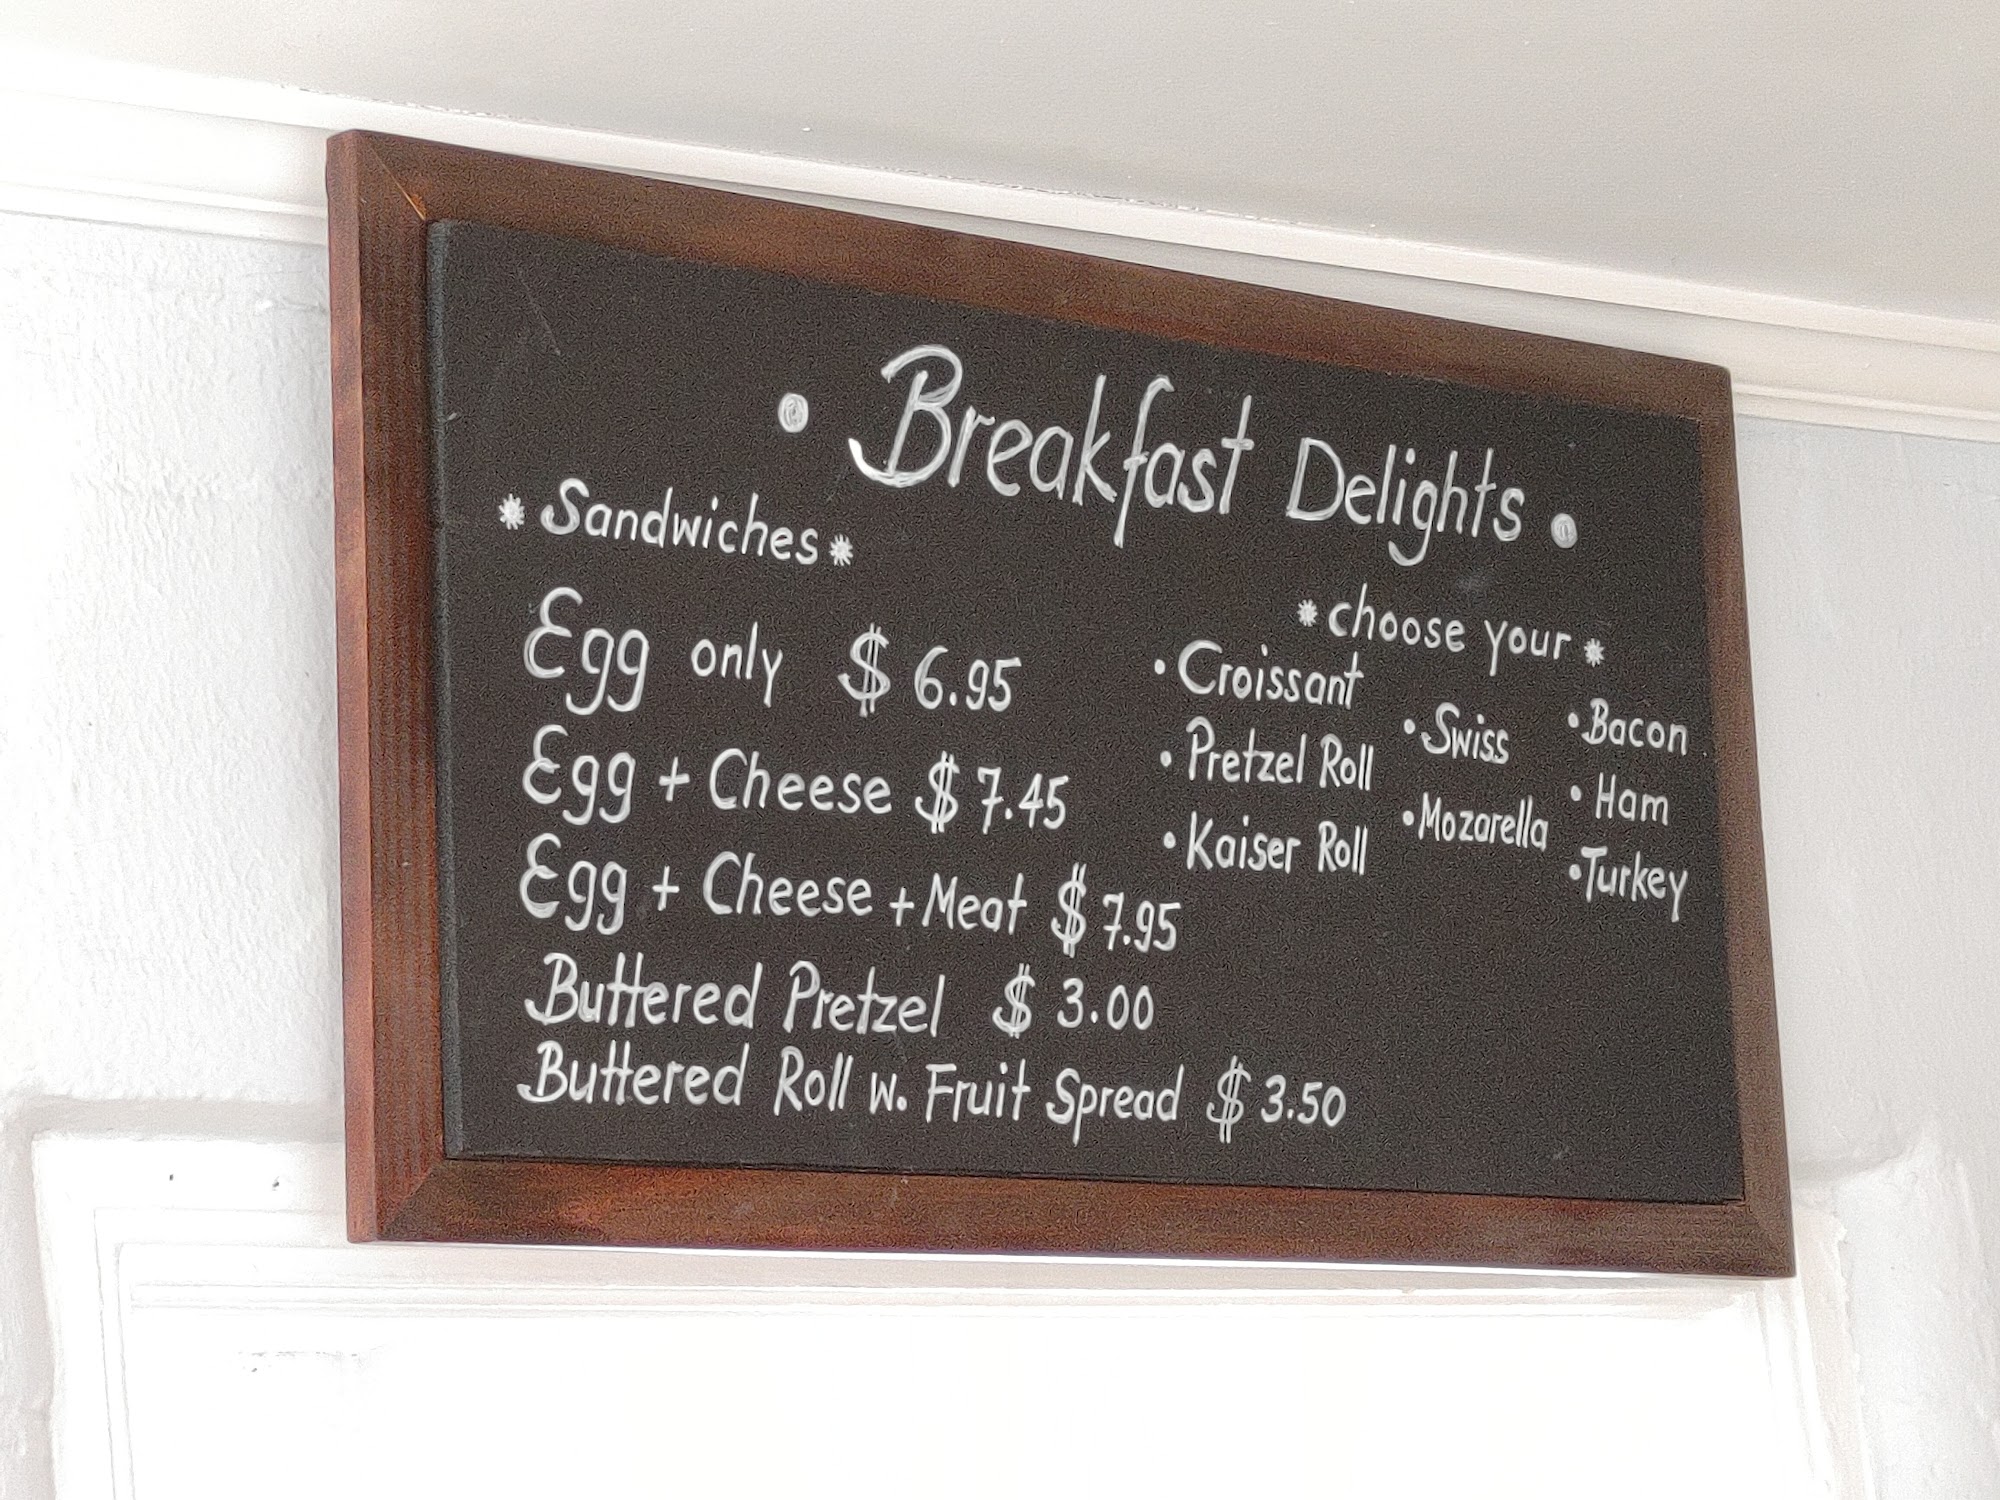 • Breakfast Delights •
* Sandwiches *
Egg only $ 6.95
Egg + Cheese $ 7.45
Egg + Cheese + Meat $ 7.95
Buttered Pretzel $ 3.00
Buttered Roll w. Fruit Spread $ 3.50
* choose your *
• Croissant
• Pretzel Roll
• Kaiser Roll
• Swiss
• Mozarella
• Bacon
• Ham
• Turkey